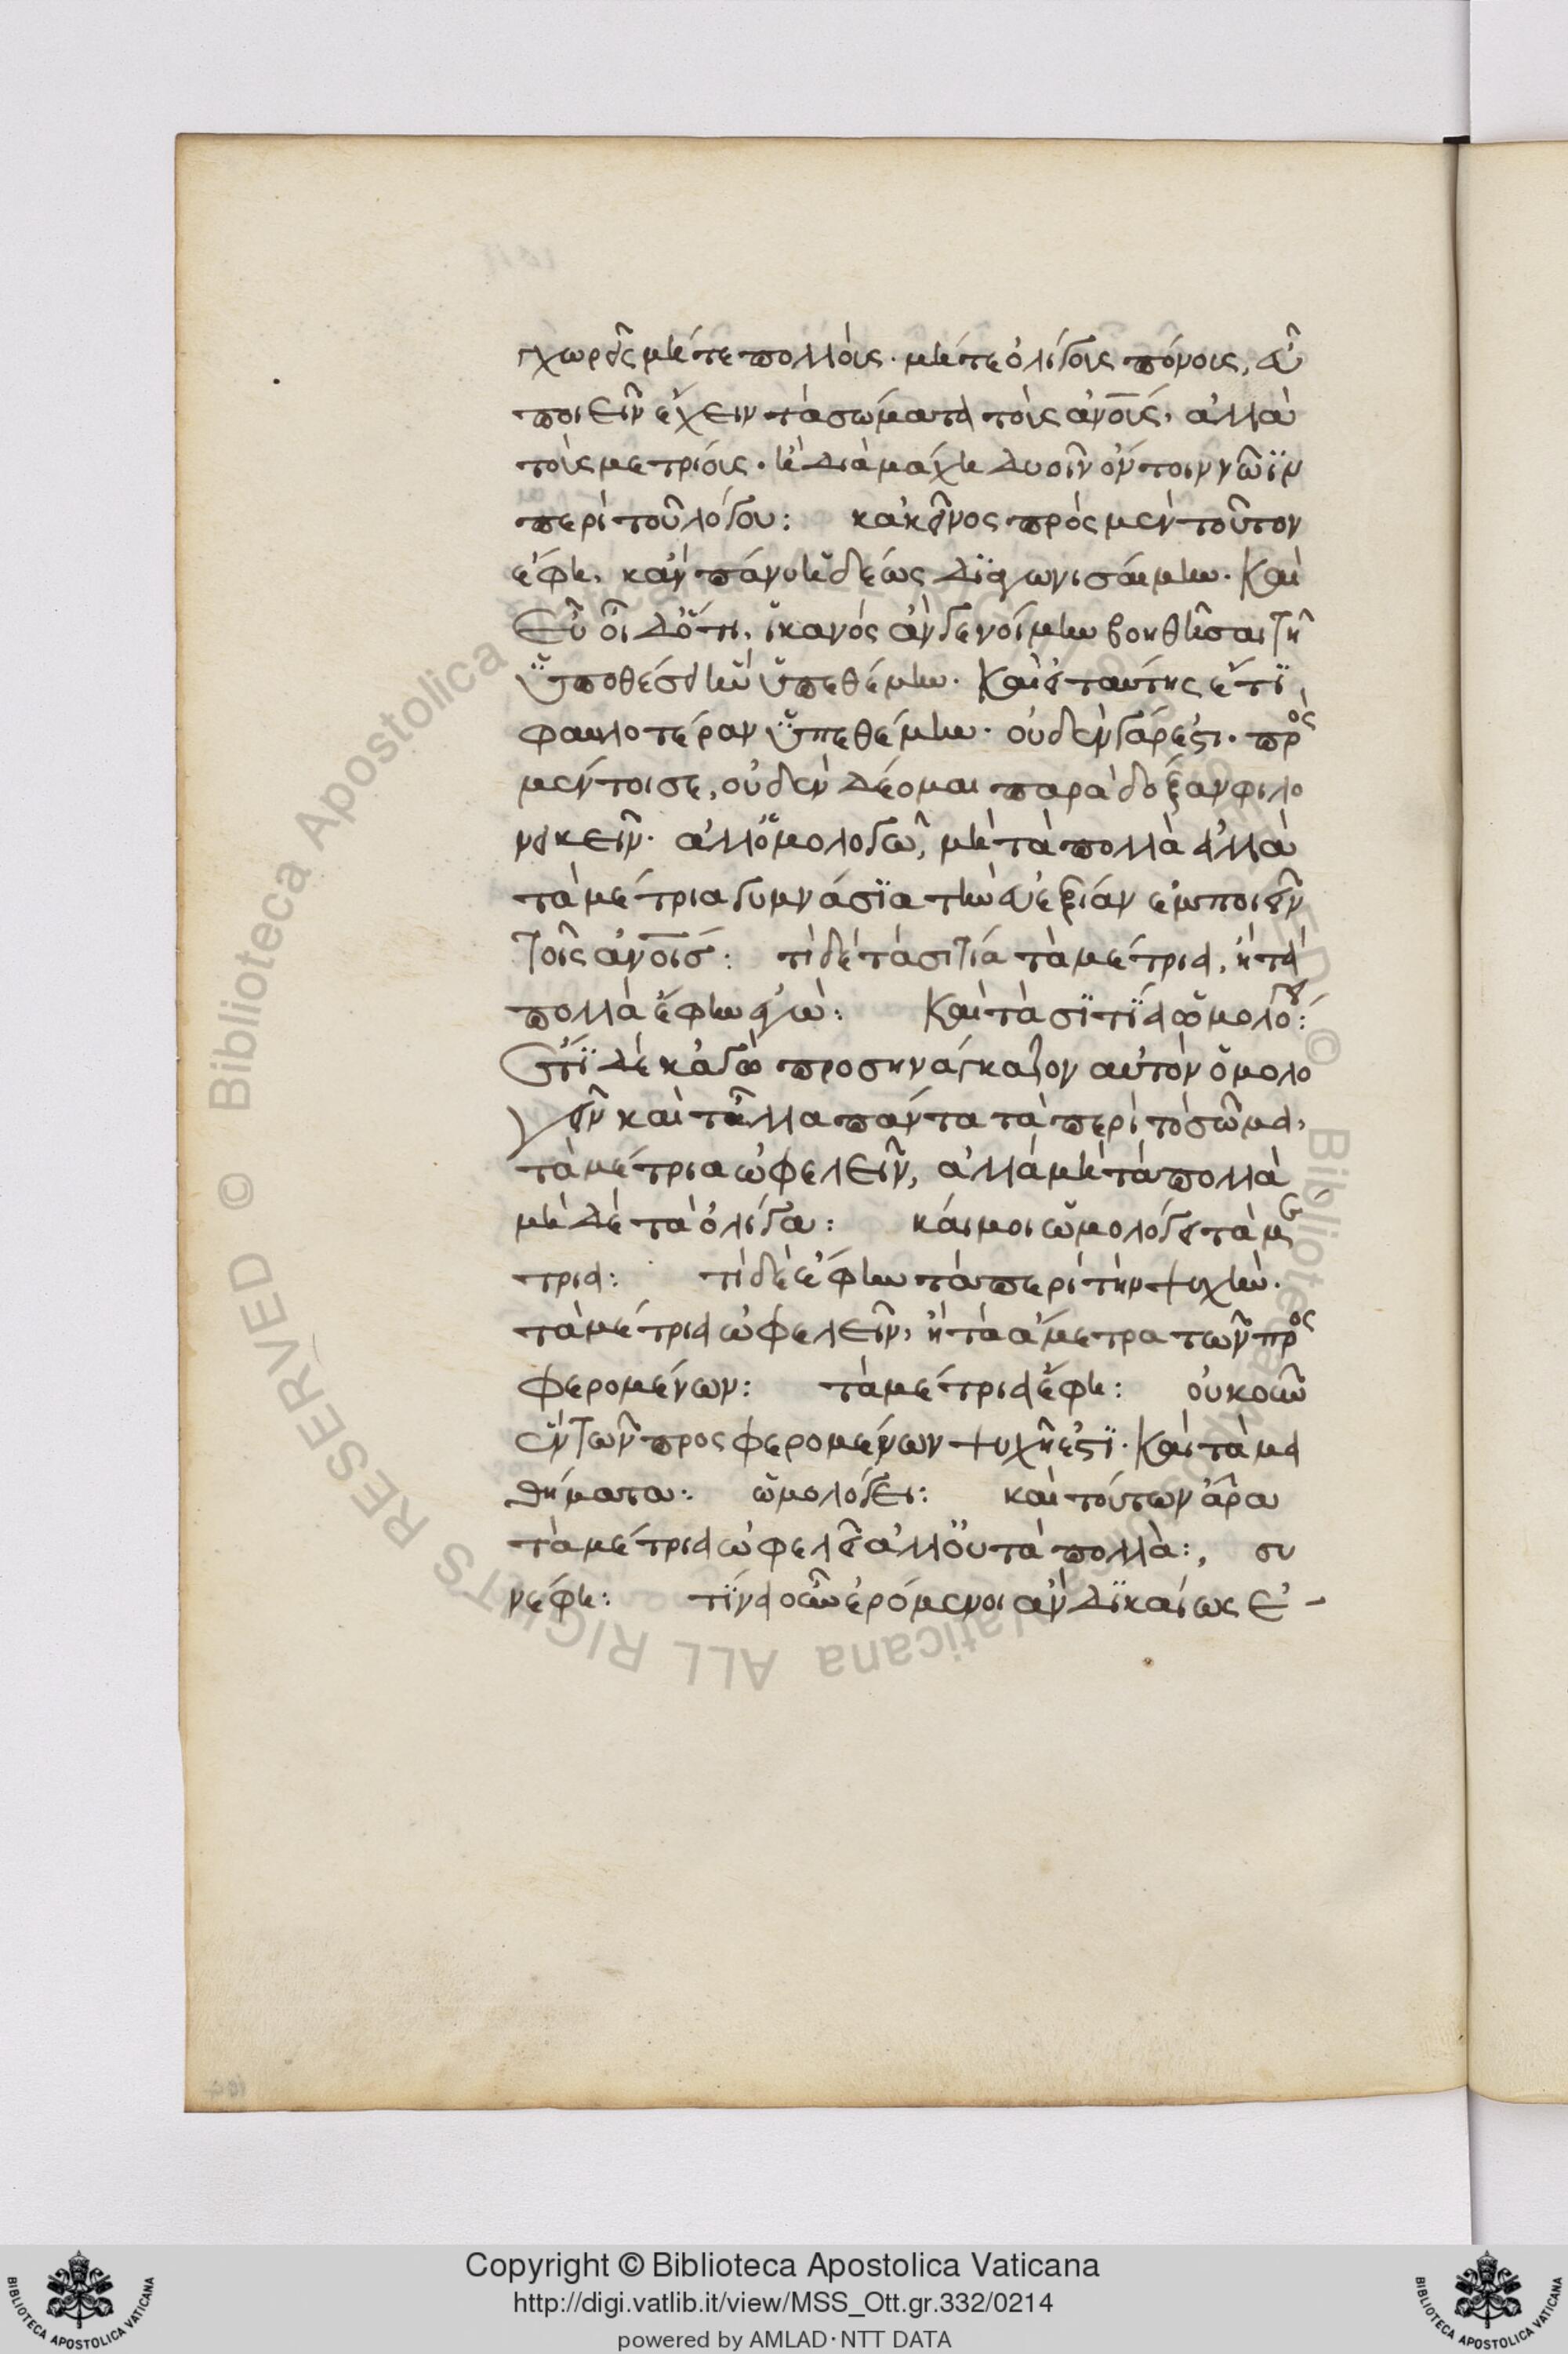 γχωρεῖς μήτε πολλοῖς. μήτε ὀλίγοις πόνοις, εὖ
ποιεῖν ἔχειν τὰ σώματα τοὺς ἀνους, ἀλλὰ
τοῖς μετρίοις. ἢ διαμάχη δυοῖν ὄντοιν νῶϊν
περὶ τοῦ λόγου: κἀκεῖνος πρὸς μὲν τοῦτον
ἔφη, κἂν πάνυ ἡδέως διαγωνισαίμην. καὶ
εὖ οἶδ' ὅτι, ἱκανὸς ἂν γενοίμην βοηθῆσαι τῇ
ὑποθέσει ἣν ὑπεθέμην. καὶ εἰ ταύτης ἔτι
φαυλοτέραν ὑπεθέμην. οὐδὲν γάρ ἐστι. πρὸς
μέντοι σε, οὐδὲν δέομαι παρὰ δόξαν φιλο
νεικεῖν. ἀλλ' ὁμολογῶ, μὴ τὰ πολλὰ ἀλλὰ
τὰ μέτρια γυμνάσια τὴν εὐεξίαν ἐμποιεῖν
τοῖς ἀνοις: τί δὲ τὰ σιτία τὰ μέτρια, ἢ τὰ
πολλὰ ἔφην ἐγώ: καὶ τὰ σιτία ὡμολόγει:
ἔτι δὲ κἀγὼ προσηνάγκαζον αὐτὸν ὁμολο
γεῖν καὶ τἆλλα πάντα τὰ περὶ τὸ σῶμα,
τὰ μέτρια ὠφελεῖν, ἀλλὰ μὴ τὰ πολλὰ
μὴ δὲ τὰ ὀλίγα: καί μοι ὡμολόγει τὰ μέ
τρια: τί δὲ ἔφην τὰ περὶ τὴν ψυχήν.
τὰ μέτρια ὠφελεῖν, ἢ τὰ ἄμετρα τῶν προς
φερομένων: τὰ μέτρια ἔφη: οὐκοῦν
ἓν τῶν προσφερομένων ψυχῇ ἐστι. καὶ τὰ μα
θήματα: ὡμολόγει: καὶ τούτων ἄρα
τὰ μέτρια ὠφελεῖ ἀλλ' οὐ τὰ πολλά:, συ
νέφη: τίνα οὖν ἐρόμενοι ἂν δικαίως ἐ-
Copyright © Biblioteca Apostolica Vaticana
http://digi.vatlib.it/view/MSS_Ott.gr.332/0214
powered by AMLAD·NTT DATA
BIBLIOTECA APOSTOLICA VATICANA
BIBLIOTECA APOSTOLICA VATICANA
© Biblioteca Apostolica Vaticana ALL RIGHTS RESERVED